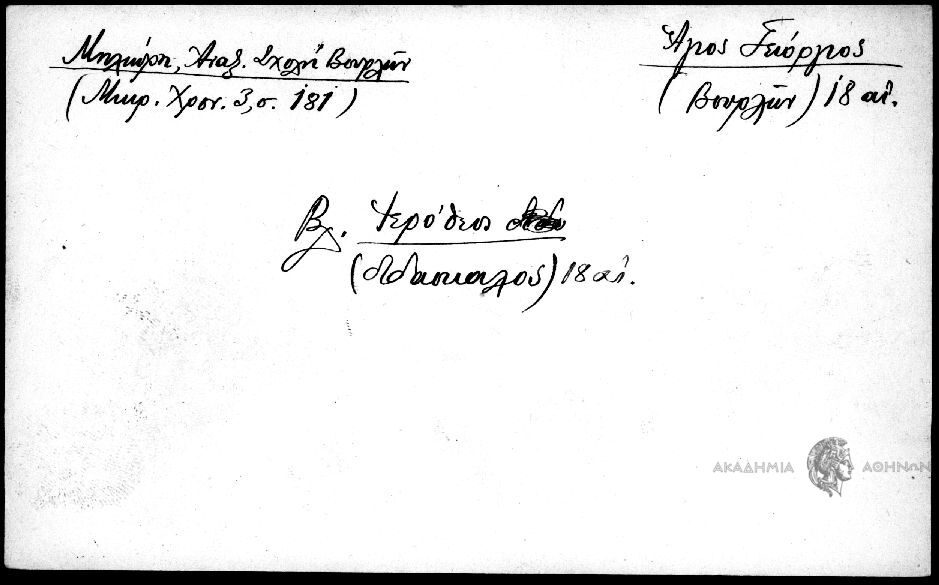 Μηλιώρη, Αναξ. Σχολή Βουρλῶν
(Μικρ. Χρον. 3, σ. 181)
Ἅγιος Γεώργιος
(Βουρλῶν) 18 αἰ.
Βλ. Ἱερόθεος
(διδάσκαλος) 18 αἰ.
ΑΚΑΔΗΜΙΑ ΑΘΗΝΩΝ